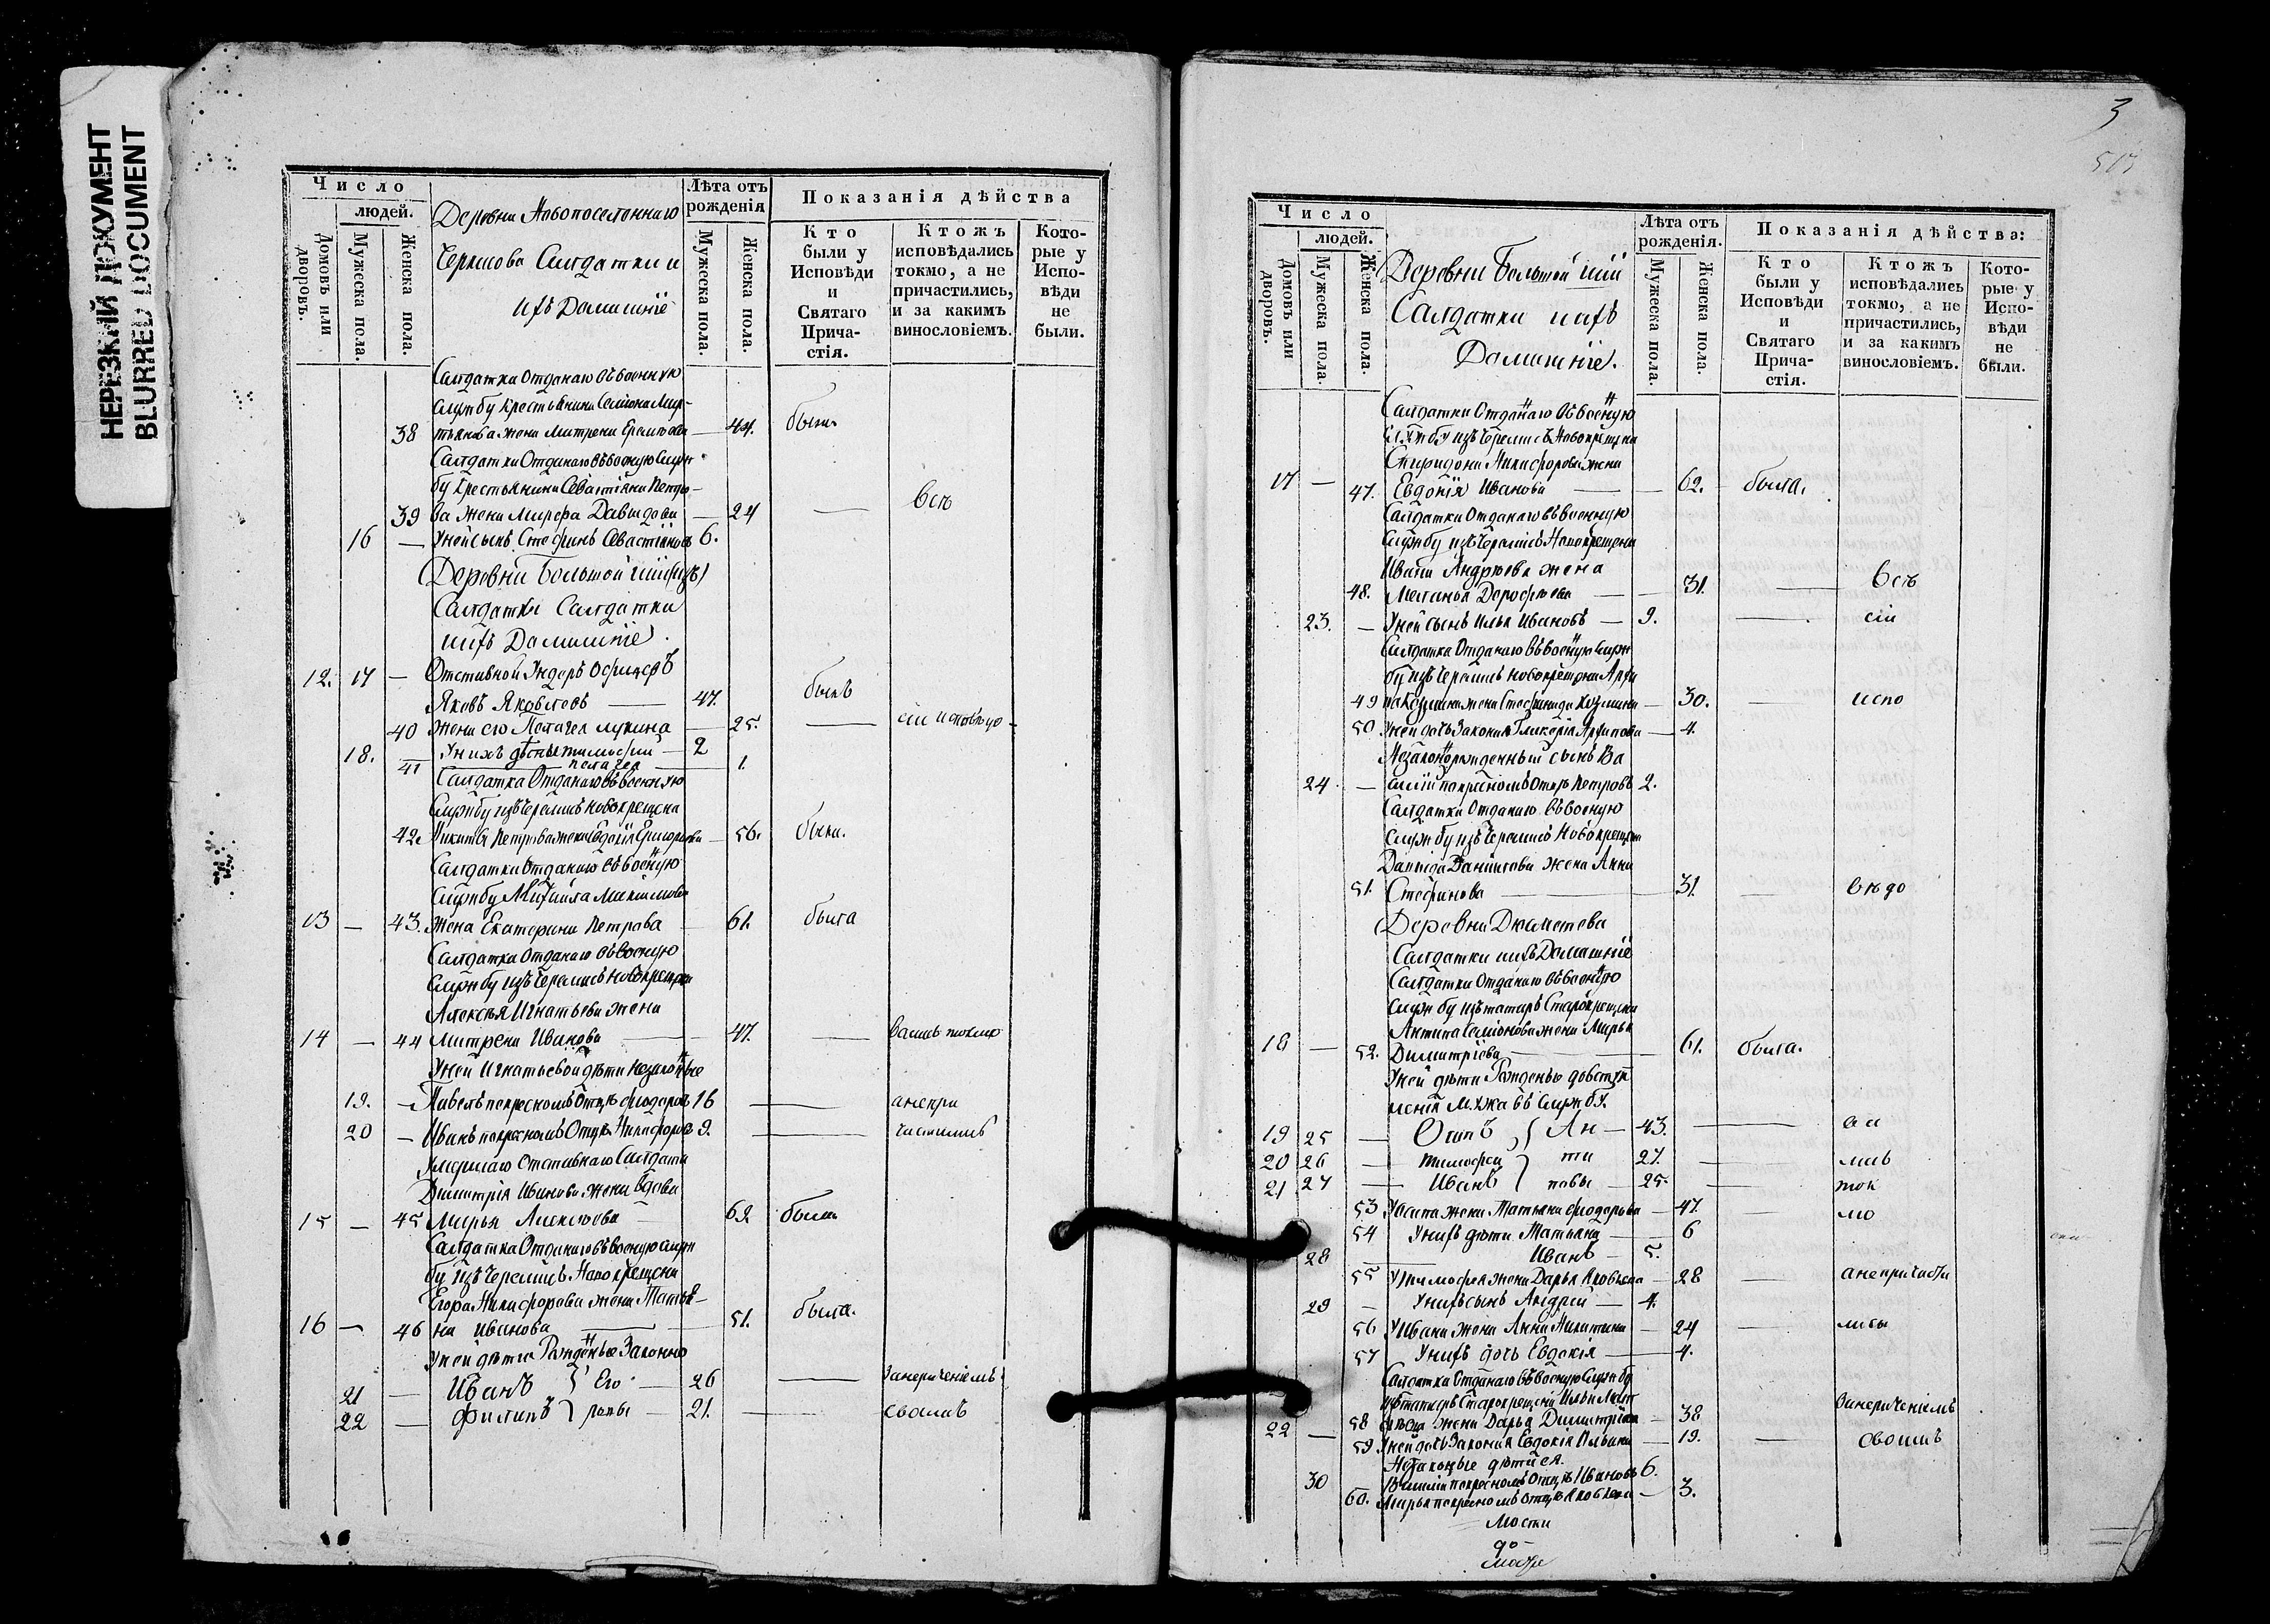 НЕРЕЗКИЙ ДОКУМЕНТ
BLURRED DOCUMENT
Число
людей.
Домовъ или дворовъ.
Мужеска пола.
Женска пола.
Деревни Новопоселеннаго
Салдатки и
ихъ Домашніе
Лѣта отъ рожденія
Мужеска пола.
Женска пола.
Показанія дѣйства
Кто были у Исповѣди и Святаго Причастія.
Ктожъ исповѣдались токмо, а не причастились, и за какимъ винословіемъ.
Которые у Исповѣди не были.
Салдатка Отданаго въ военную
службу крестьянина Семіона
38 жена Матрена 44. была
Салдатка Отданаго въ военую служ
бу крестьянина Севастіяна Петро-
39 ва жена Марфа Давыдова — 24 — всѣ
16 — У ней сынъ Стефанъ Севастіяновъ 6.
Деревни Большой
Салдатки Салдатки
ихъ Домашніе
12. 17 — Отставной Ундеръ Офицеръ
Яковъ Яковлевъ — 47. былъ
40 жена его Пелагея Лукина — 25. —
18. У нихъ дѣти Тимофей — 2
41 Пелагея — 1.
Салдатка Отданаго въ военную
службу изъ черемисъ новокрещена
42. Никиты Петрова жена Евдокія Григорьева — 56. была.
Салдатки Отданаго въ военую
службу Михаила Максимова
13 — 43. жена Екатерина Петрова 61. была
Салдатка Отданаго въ военую
службу изъ черемисъ новокрещена
Алексѣя Игнатьева жена
14 — 44 Матрена Иванова — 47. —
У ней Игнатьевой дѣти незаконные
19. — Павелъ по кресномъ Отцѣ Фіодоровъ 16 — а не при
20 — Иванъ по кресномъ Отцѣ Никифоровъ 9. — частились
Умершаго Отставнаго Салдата
Димитрія Иванова жена вдова
15 — 45 Марья Алексѣева 62 была
Салдатка Отданаго въ военую служ
бу изъ черемисъ Новокрещена
Егора Никифорова жена Татья-
16 — 46 на Иванова — 51. была.
У ней дѣти Рожденые Законно
21 — Иванъ } Его — 26 — за нереченіемъ
22 — Филипъ } ровы — 21. — своимъ
3
Число
людей.
Домовъ или дворовъ.
Мужеска пола.
Женска пола.
Деревни Большой
Салдатки и ихъ
Домашніе.
Лѣта отъ рожденія.
Мужеска пола.
Женска пола.
Показанія дѣйства:
Кто были у Исповѣди и Святаго Причастія.
Ктожъ исповѣдались токмо, а не причастились, и за какимъ винословіемъ.
Которые у Исповѣди не были.
Салдатки Отданаго въ военую
службу изъ черемисъ Новокрещена
Спиридона Никифорова жена
17 — 47. Евдокія Иванова — 62. была.
Салдатки Отданаго въ военную
службу изъ черемисъ Новокрещена
Ивана Андреева жена
48. Меланья Дорофѣева — 31. — всѣ
23. — У ней сынъ Илья Ивановъ — 9. — сіи
Салдатка Отданаго въ военую служ
бу изъ черемисъ новокрещена Архи
49 па жена Стефанида Козмина — 30. — испо
50 У ней дочь Законая Гликерія Архипова — 4.
Незаконорожденный сынъ Ва
24 — силій по кресномъ Отцѣ Петровъ 2.
Салдатки Отданаго въ военую
службу изъ черемисъ Новокрещена
Давыда Данилова жена Анна
51. Стефанова — 31. — вѣдо
Деревни Дюметева
Салдатки и ихъ Домашніе
Салдатки Отданаго въ военую
службу изъ татаръ Старокрещена
Антипа Семіонова жена Марья
18 — 52. Димитріева — 61. была.
У ней дѣти Рожденые до вступ
ленія мужа въ службу.
19 25 — Осипъ } Ан — 43. — ва
20 26 — Тимофей } ти 27. — лись
21 27 — Иванъ } повы — 25. — ток
53 У Осипа жена Татьяна Фіодорова — 47. мо
54 У нихъ дѣти Татьяна — 6
28 Иванъ — 5.
55 У Тимофея жена Дарья Яковлева — 28 — а не причасти
29 — У нихъ сынъ Андрей — 4.
56 У Ивана жена Анна Никитина — 24 — лись
57 У нихъ дочь Евдокія — 4.
Салдатка Отданаго въ военую службу
изъ татаръ Старокрещена Ильи
22 — 58 жена Дарья Димитріева — 38 за нереченіемъ
59 У ней дочь Законая Евдокія Ильина — 19. — своимъ
Незаконые дѣти ея
30 Василій по кресномъ Отцѣ Ивановъ 6.
60. Марья по кресномъ Отцѣ Яковлева — 3.